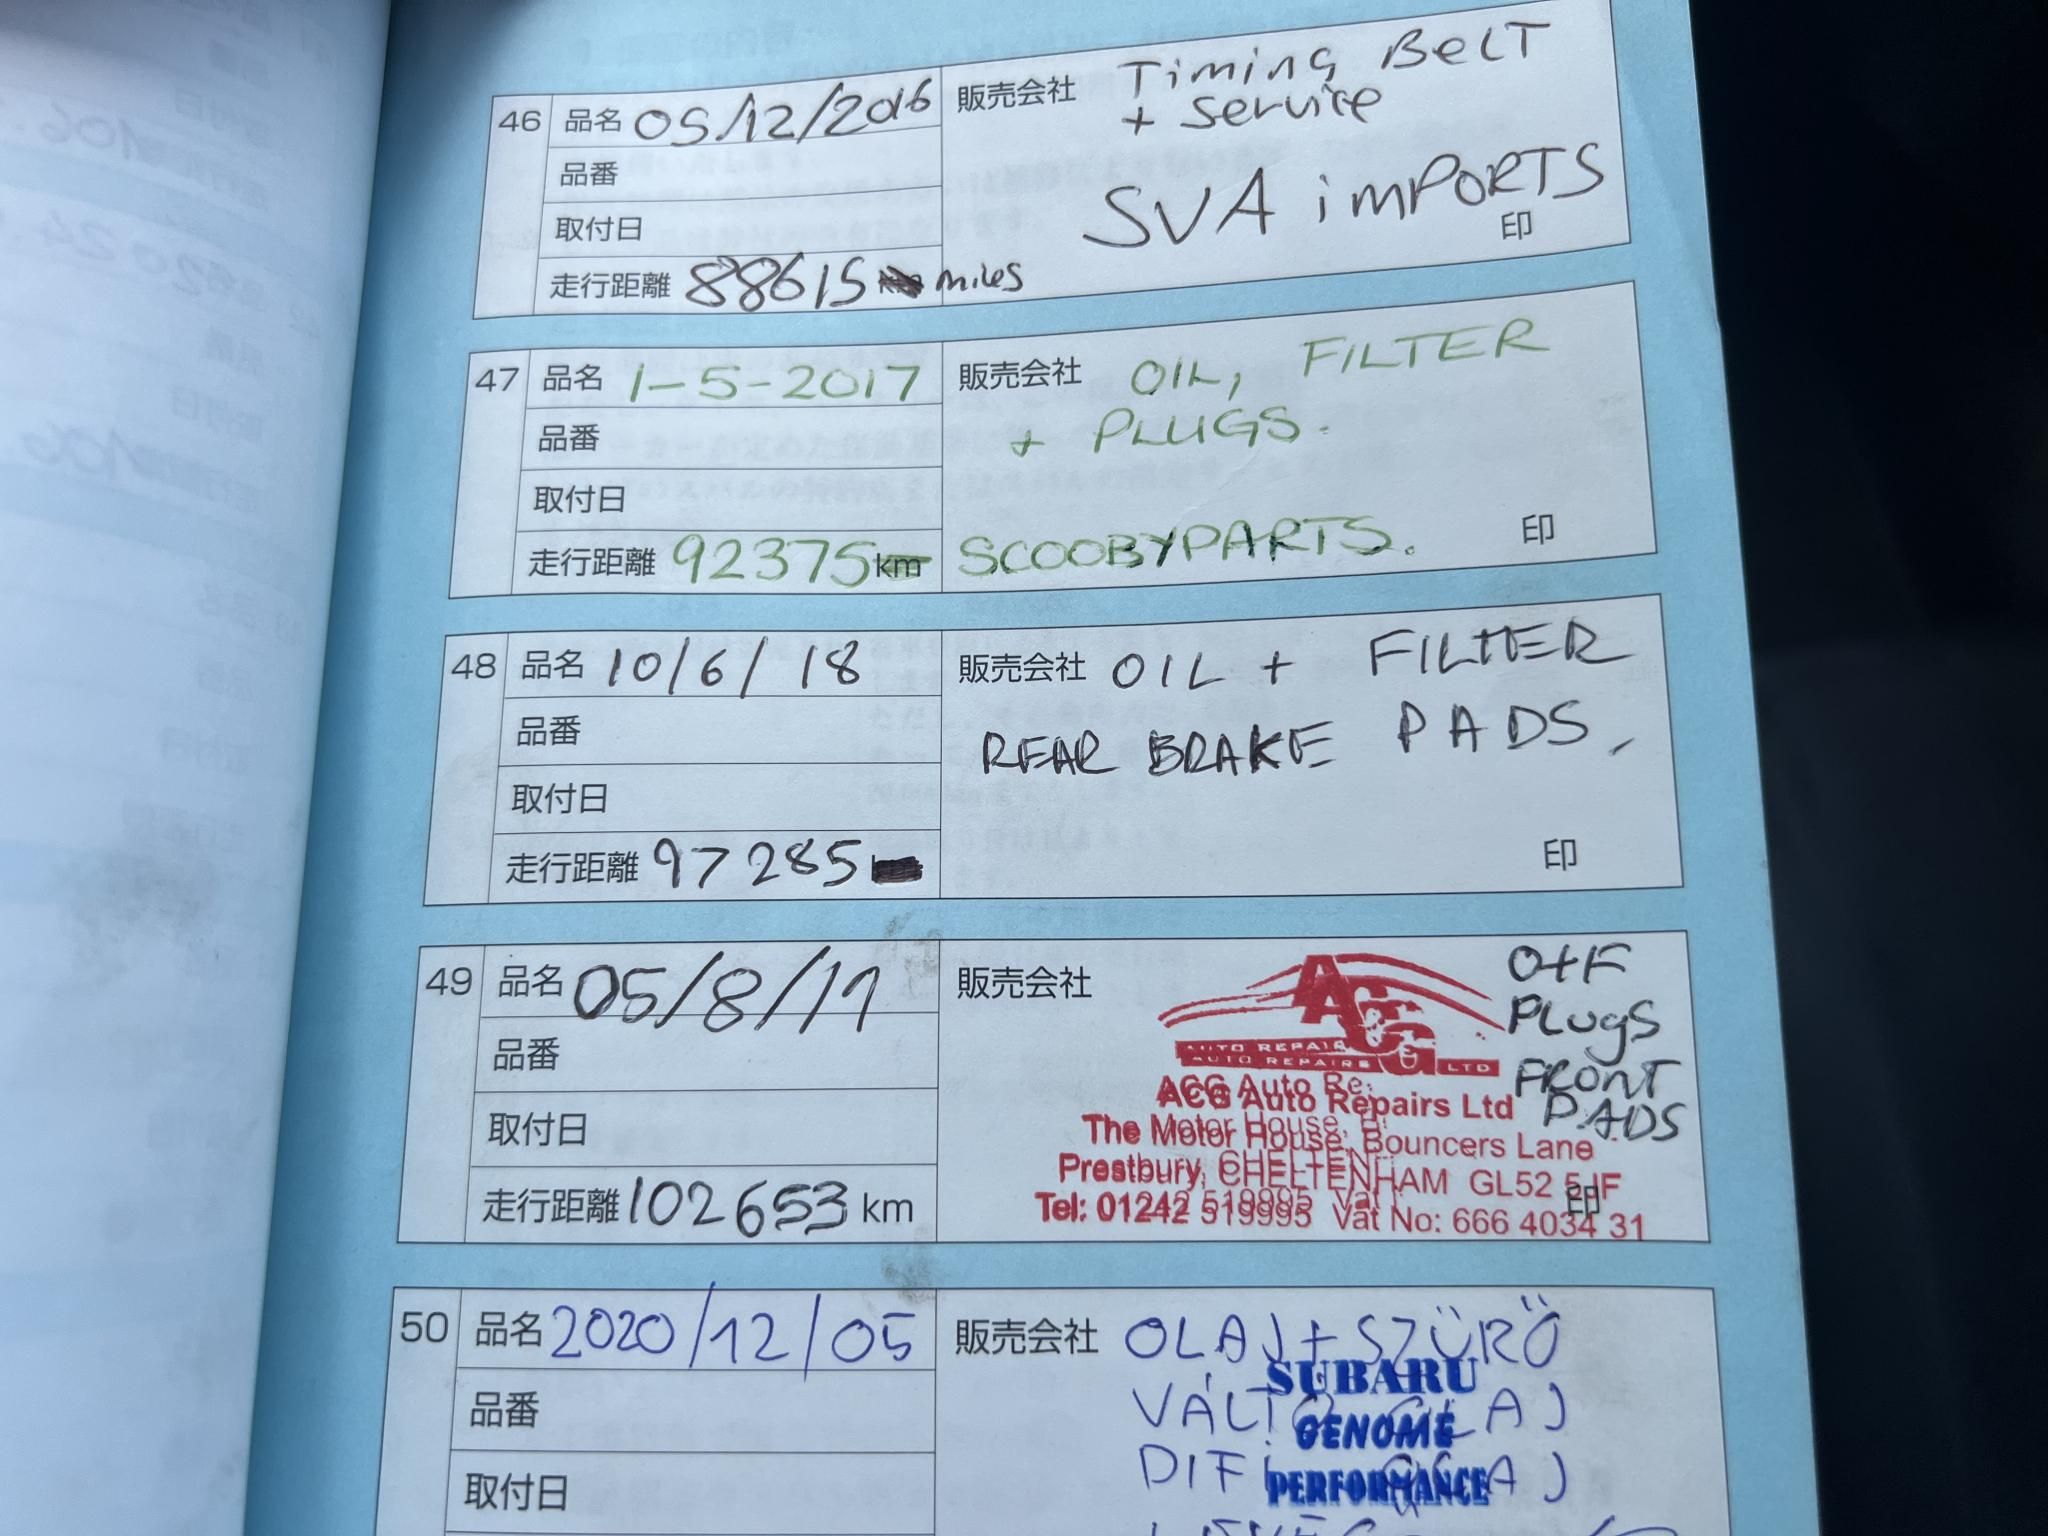 46 品名 05/12/2016 販売会社 Timing BeLT
+ Service
品番
SVA imPORTS
取付日
印
走行距離 88615 miles
47 品名 1-5-2017 販売会社 OIL, FILTER
+ PLUGS.
品番
取付日
印
走行距離 92375 km SCOOBYPARTS.
48 品名 10/6/18 販売会社 OIL + FILTER
REAR BRAKE PADS,
品番
取付日
印
走行距離 97285
49 品名 05/8/19 販売会社
O+F
PLugS
FRONT
PADS
品番
AUTO REPAIRS LTD
ACG Auto Repairs Ltd
The Motor House, Bouncers Lane
取付日
Prestbury, CHELTENHAM GL52 5JF
印
Tel: 01242 519995 Vat No: 666 4034 31
走行距離 102653 km
50 品名 2020/12/05 販売会社 OLAJ + SZŰRŐ
SUBARU
VÁLTÓ OLAJ
GENOME
品番
DIFI OLAJ
PERFORMANCE
取付日